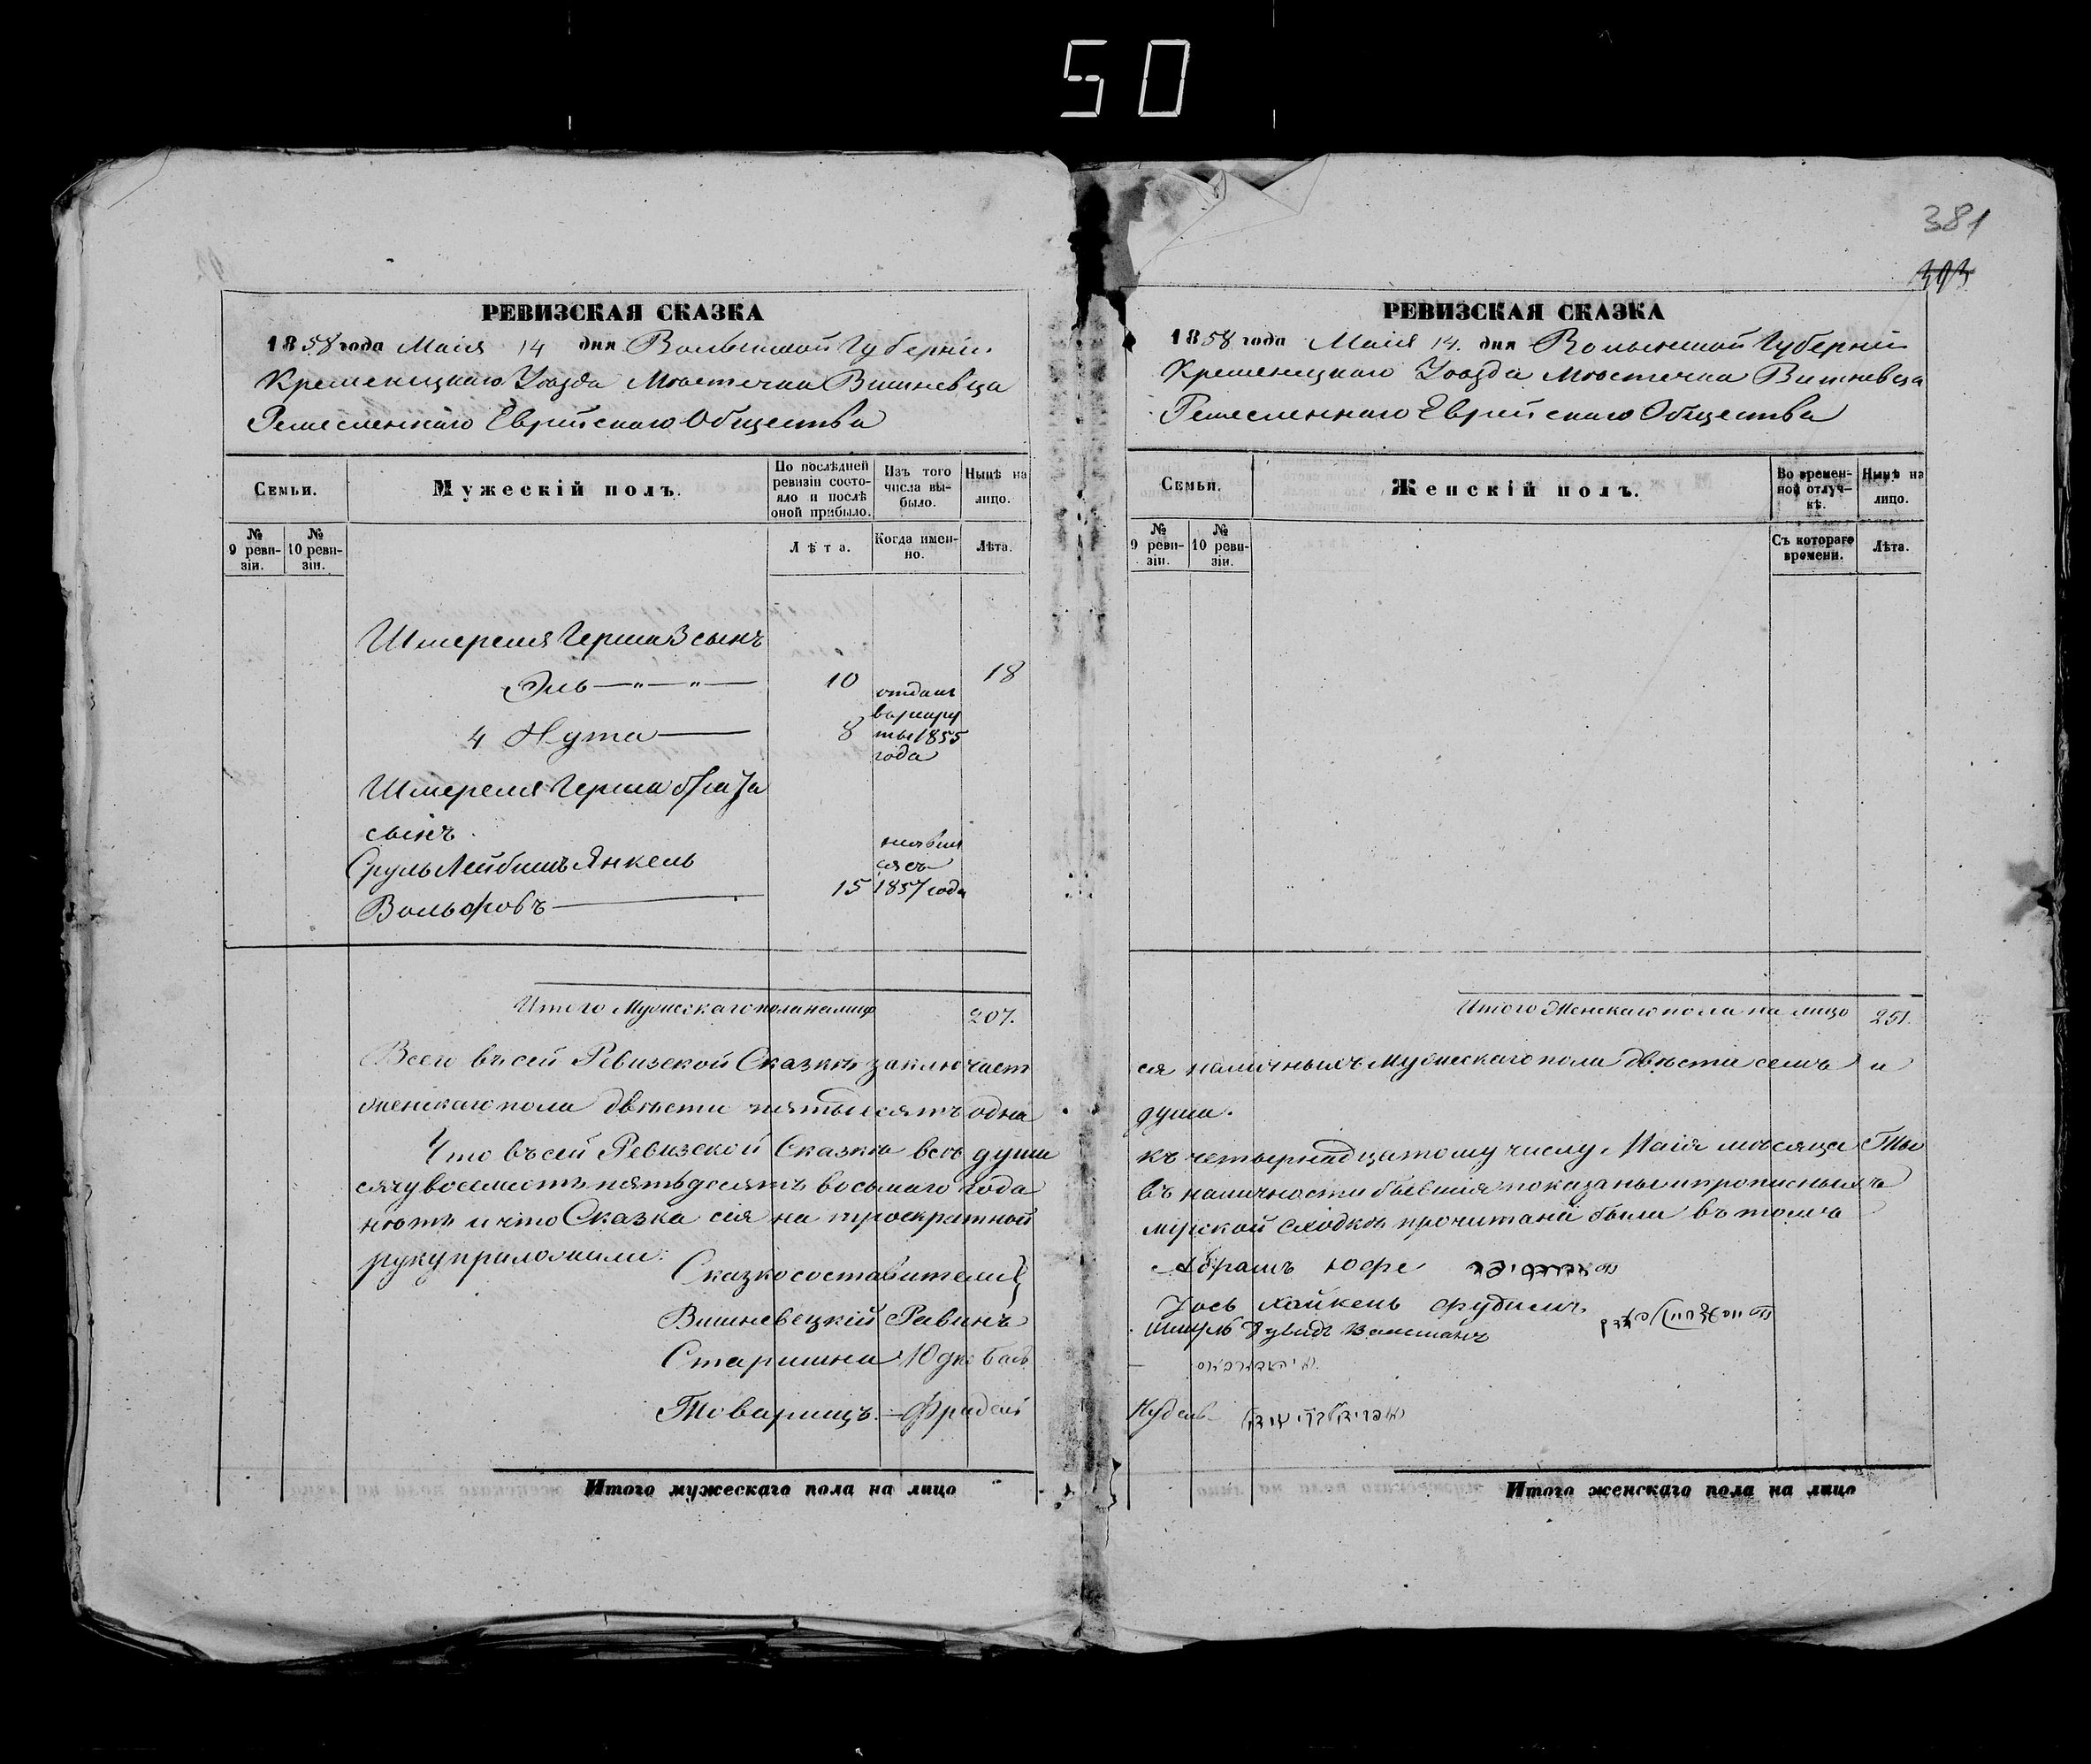 50
381
РЕВИЗСКАЯ СКАЗКА
1858 года Маія 14 дня Волынской Губерніи
Кременецкаго Уѣзда Мѣстечка Вишневца
Ремесленнаго Еврейскаго Общества
Семьи.
Мужескій полъ.
По послѣдней ревизіи состояло и послѣ оной прибыло.
Изъ того числа выбыло.
Нынѣ на лицо.
№ 9 ревизіи.
№ 10 ревизіи.
Лѣта.
Когда именно.
Лѣта.
Шмереля Герша 3 сынъ
Эль —"—"— 10 18
4 Нута — 8 отданъ в рекруты 1855 года
Шмереля Герша брата
сынъ
Сруль Лейбишъ Янкель
Вольфовъ — 15 1857 года
Итого Мужескаго пола на лицо 207.
Всего въ сей Ревизской Сказкѣ заключает
женскаго пола двѣсти пятьдесятъ одна
Что въ сей Ревизской Сказкѣ всѣ души
сячу восемьсотъ пятьдесятъ восьмаго года
нѣтъ и что Сказка сія на троекратной
руку приложили:
Сказкосоставители
Вишневецкій Равинъ
Старшина
Товарищъ — Фридель
Итого мужескаго пола на лицо
РЕВИЗСКАЯ СКАЗКА
1858 года Маія 14. дня Волынской Губерніи
Кременецкаго Уѣзда Мѣстечка Вишневца
Ремесленнаго Еврейскаго Общества
Семьи.
Женскій полъ.
Во временной отлучкѣ.
Нынѣ на лицо.
№ 9 ревизіи.
№ 10 ревизіи.
Съ котораго времени.
Лѣта.
Итого Женскаго пола на лицо 251.
ся наличныхъ Мужескаго пола двѣсти семь и
душа.
къ четырнадцатому числу Маія мѣсяца Ты
въ наличности бывшія показаны и прописныхъ
мірской сходкѣ прочитана была въ томъ
Абрамъ Юфе
Хайкель
Кудель
Итого женскаго пола на лицо